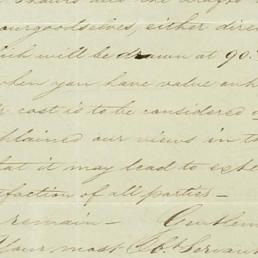 yourgoodselves, either direc
ich will be drawn at 90.
when you have value on h
r cost is to be considered
plained our views in t
at it may lead to exte
sfaction of all parties —
remain — Gentlem
Your most Obt Servan